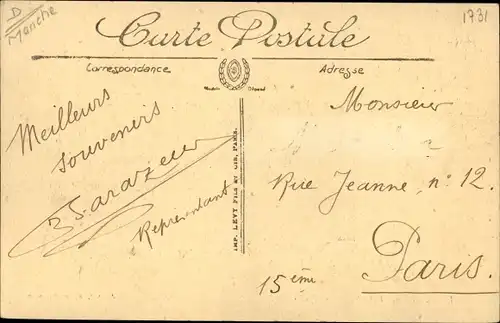 D
Manche
1731
Carte Postale
Correspondance
Adresse
Modèle Déposé
Meilleurs
souvenirs.
Représentant
IMP. LEVY FILS ET CIE, PARIS.
Monsieur
Rue Jeanne, n° 12.
Paris.
15ème